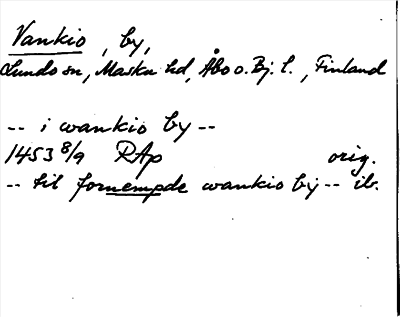 Vankio, by,
Lundo sn, Masku hd, Åbo o. Bj. l., Finland
-- i wankio by --
1453 8/9 RAp orig.
-- til fornempde wankio by -- ib.